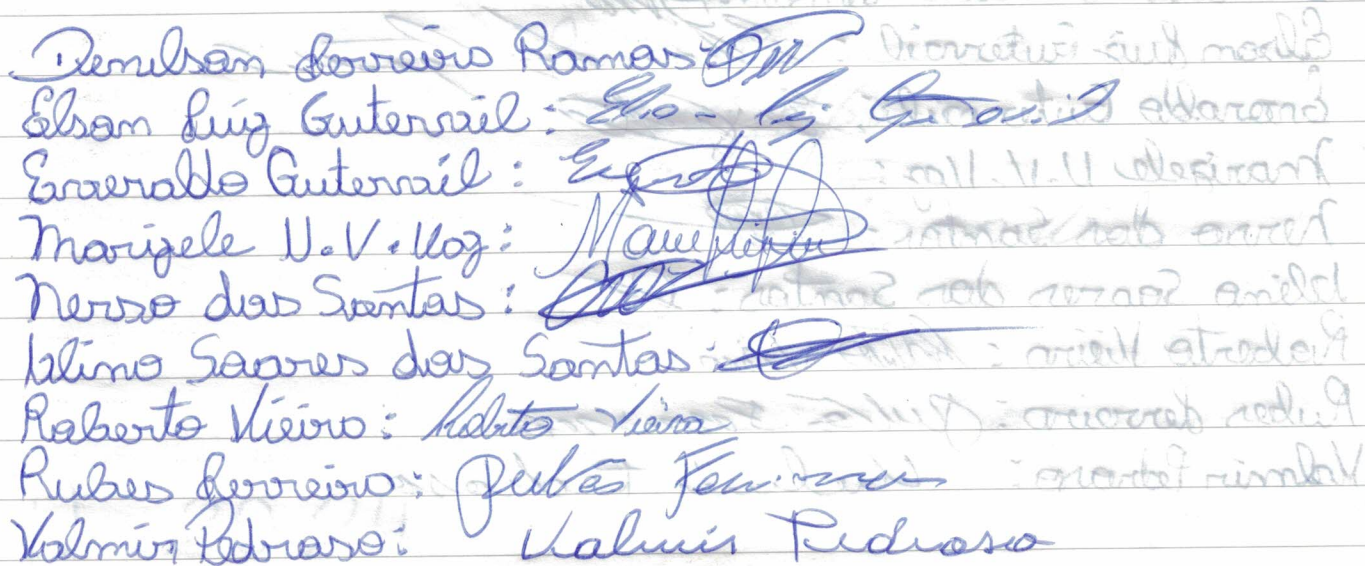 Denilson Ferreira Ramos:
Elson Luiz Gutervail:
Everaldo Gutervail:
Marizele U.V. Vog:
Nerso dos Santos:
Ulino Soares dos Santos:
Roberto Vieira: Roberto Vieira
Rubes Ferreira: Rubes Ferreira
Valmir Pedroso: Valmir Pedroso